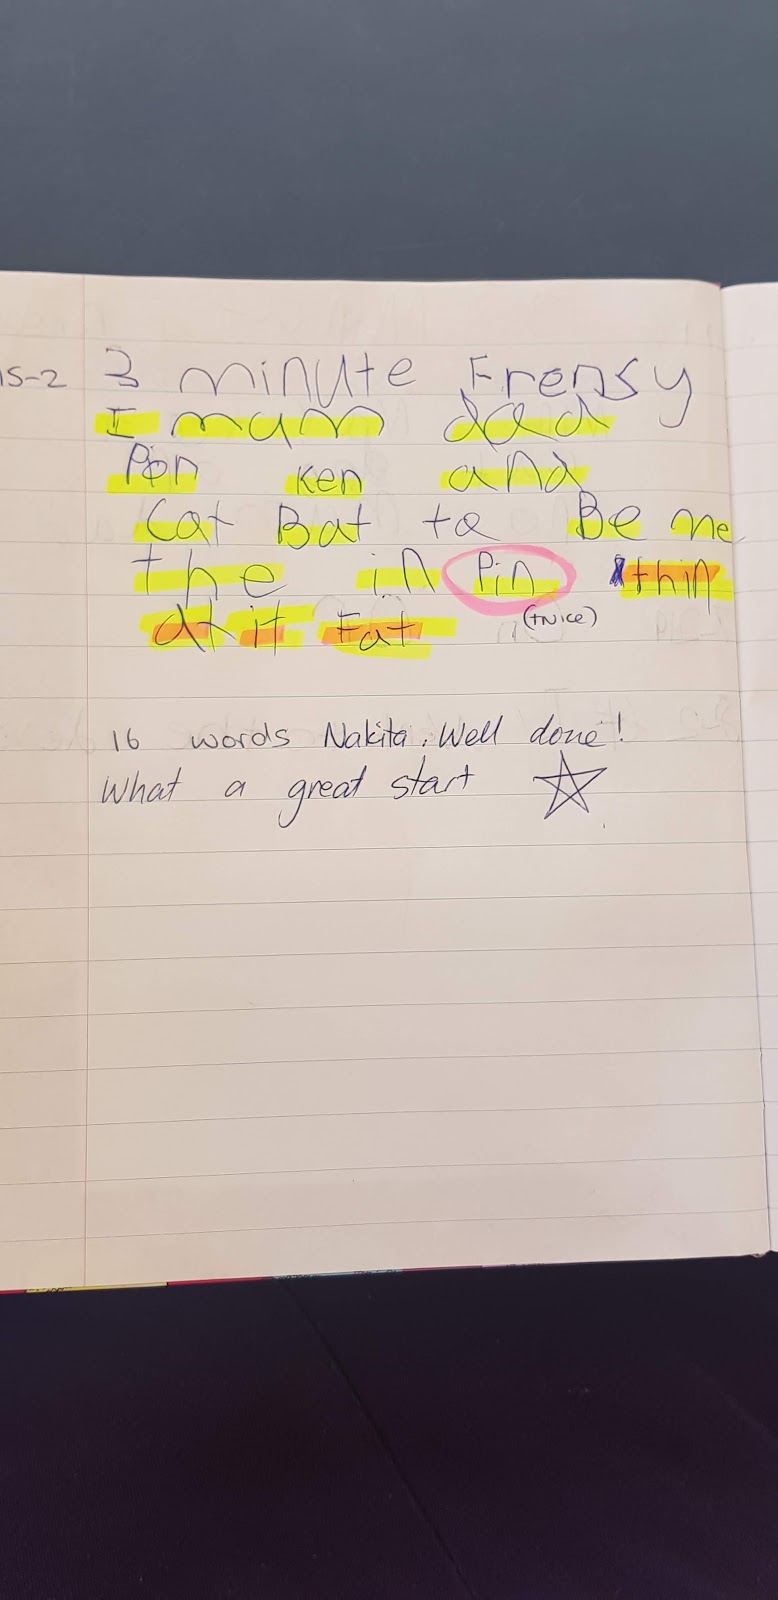 15-2 3 minute Frensy
I mum dad
Pin Ken and
Cat Bat to Be me
the in Pin thin
at it Fat (twice)
16 words Nakita. Well done!
What a great start